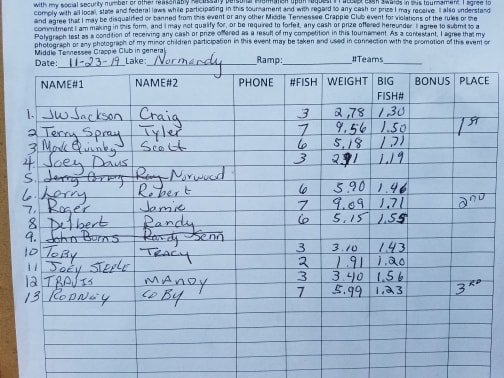 with my social security number or other reasonably necessary personal information upon request if I accept cash awards in this tournament. I agree to
comply with all local, state and federal laws while participating in this tournament and with regard to any cash or prize I may receive. I also understand
and agree that I may be disqualified or banned from this event or any other Middle Tennessee Crappie Club event for violations of the rules or the
commitment I am making in this form, and I may not qualify for, or be required to forfeit, any cash or prize offered hereunder. I agree to submit to a
Polygraph test as a condition of receiving any cash or prize offered as a result of my competition in this tournament. As a contestant, I agree that my
photograph or any photograph of my minor children participation in this event may be taken and used in connection with the promotion of this event or
Middle Tennessee Crappie Club in general.
Date: 11-23-19 Lake: Normandy Ramp: #Teams
NAME#1 NAME#2 PHONE #FISH WEIGHT BIG FISH# BONUS PLACE
1. JW Jackson Craig 3 2.78 1.30
2 Terry Spray Tyler 7 9.56 1.50 1st
3 Mark Quimby Scott 6 5.18 1.21
4. Joey Davis 3 2.91 1.19
5. Norwood
6. Larry Robert 6 5.90 1.46
7. Roger Jamie 7 9.09 1.71 2nd
8 Delbert Randy 6 5.15 1.55
9. John Burns Randy Senn
10 Toby Tracy 3 3.10 1.43
11 Joey Steele 2 1.91 1.20
12 TRAVIS MANDY 3 3.40 1.56
13 RODNEY COBY 7 5.99 1.23 3RD